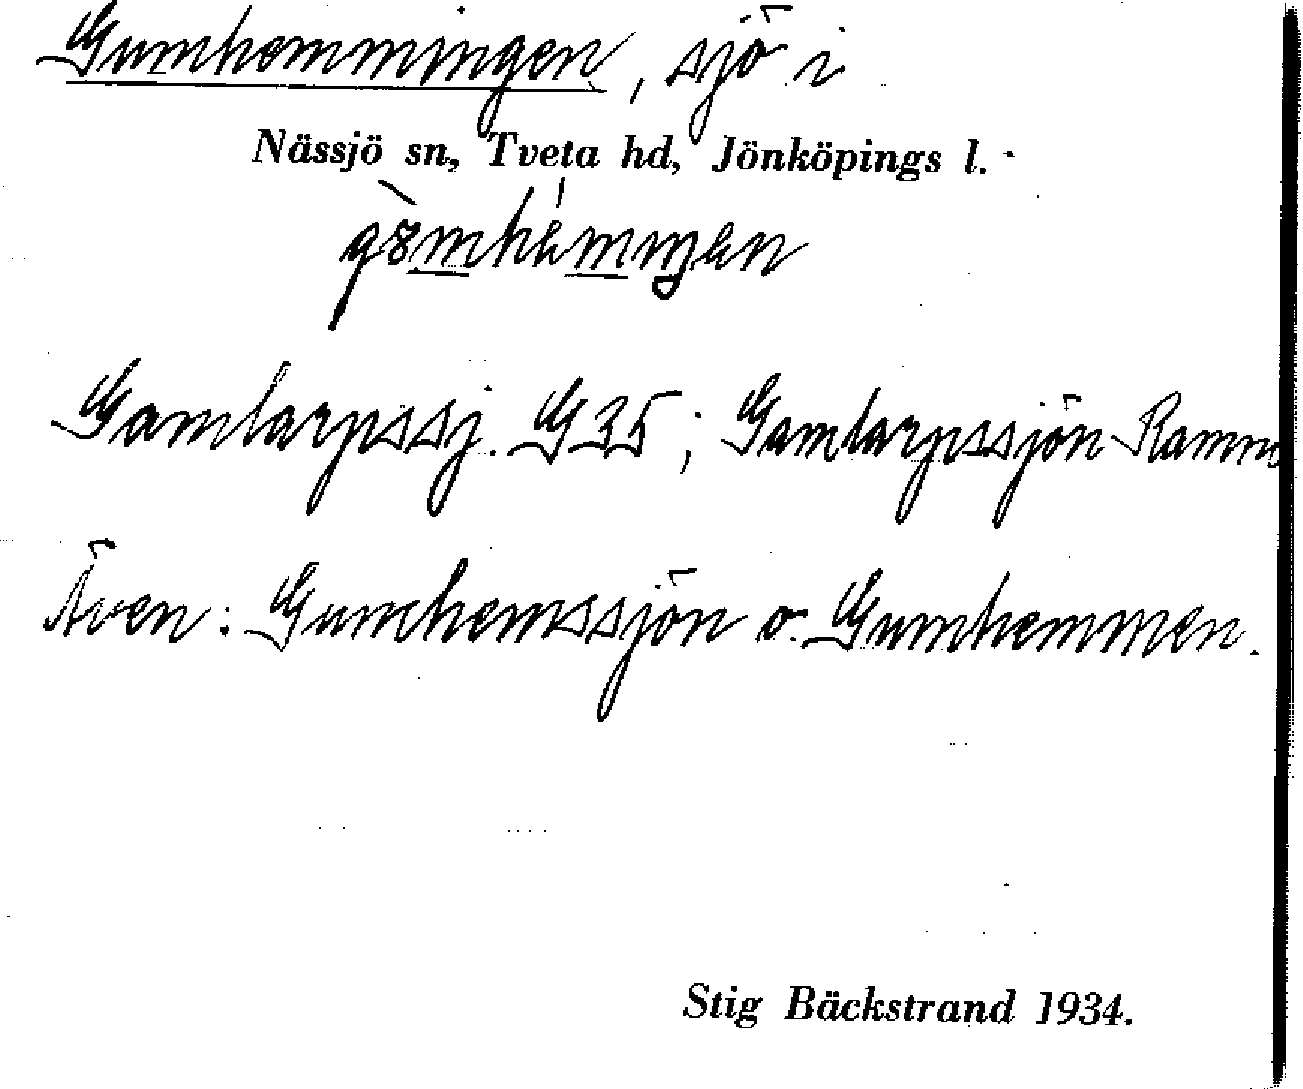 Gumhemmingen, sjö i
Nässjö sn, Tveta hd, Jönköpings l.
Gamlarpssj. G35; Gamlarpssjön Ramm
Även: Gumhemssjön o. Gumhemmen.
Stig Bäckstrand 1934.